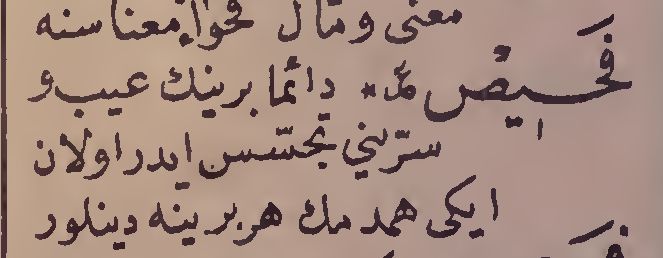 معنى ومآل فحواء معناسنه
فَحِيصْ دائما برينك عيب و
سرّينى تجسّس ايدر اولان
ايكى همدمك هر برينه دينلور